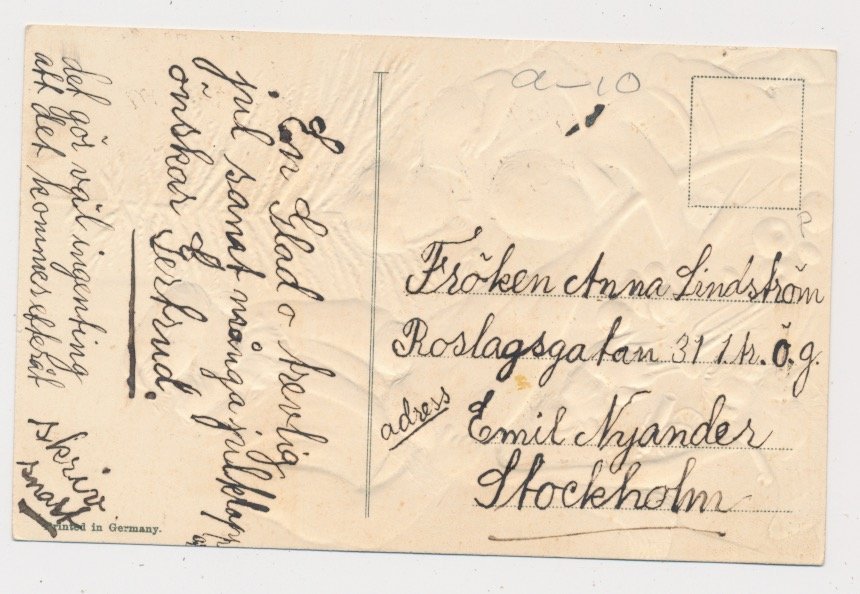 En Glad o trevlig
jul samt många julklapp
ar
önskar Gertrud.
det gör väl ingenting
att det kommer efteråt
skriv
snart
Printed in Germany.
a-10
a
Fröken Anna Lindström
Roslagsgatan 31 1 tr. ö. g.
adress
Emil Nyander
Stockholm